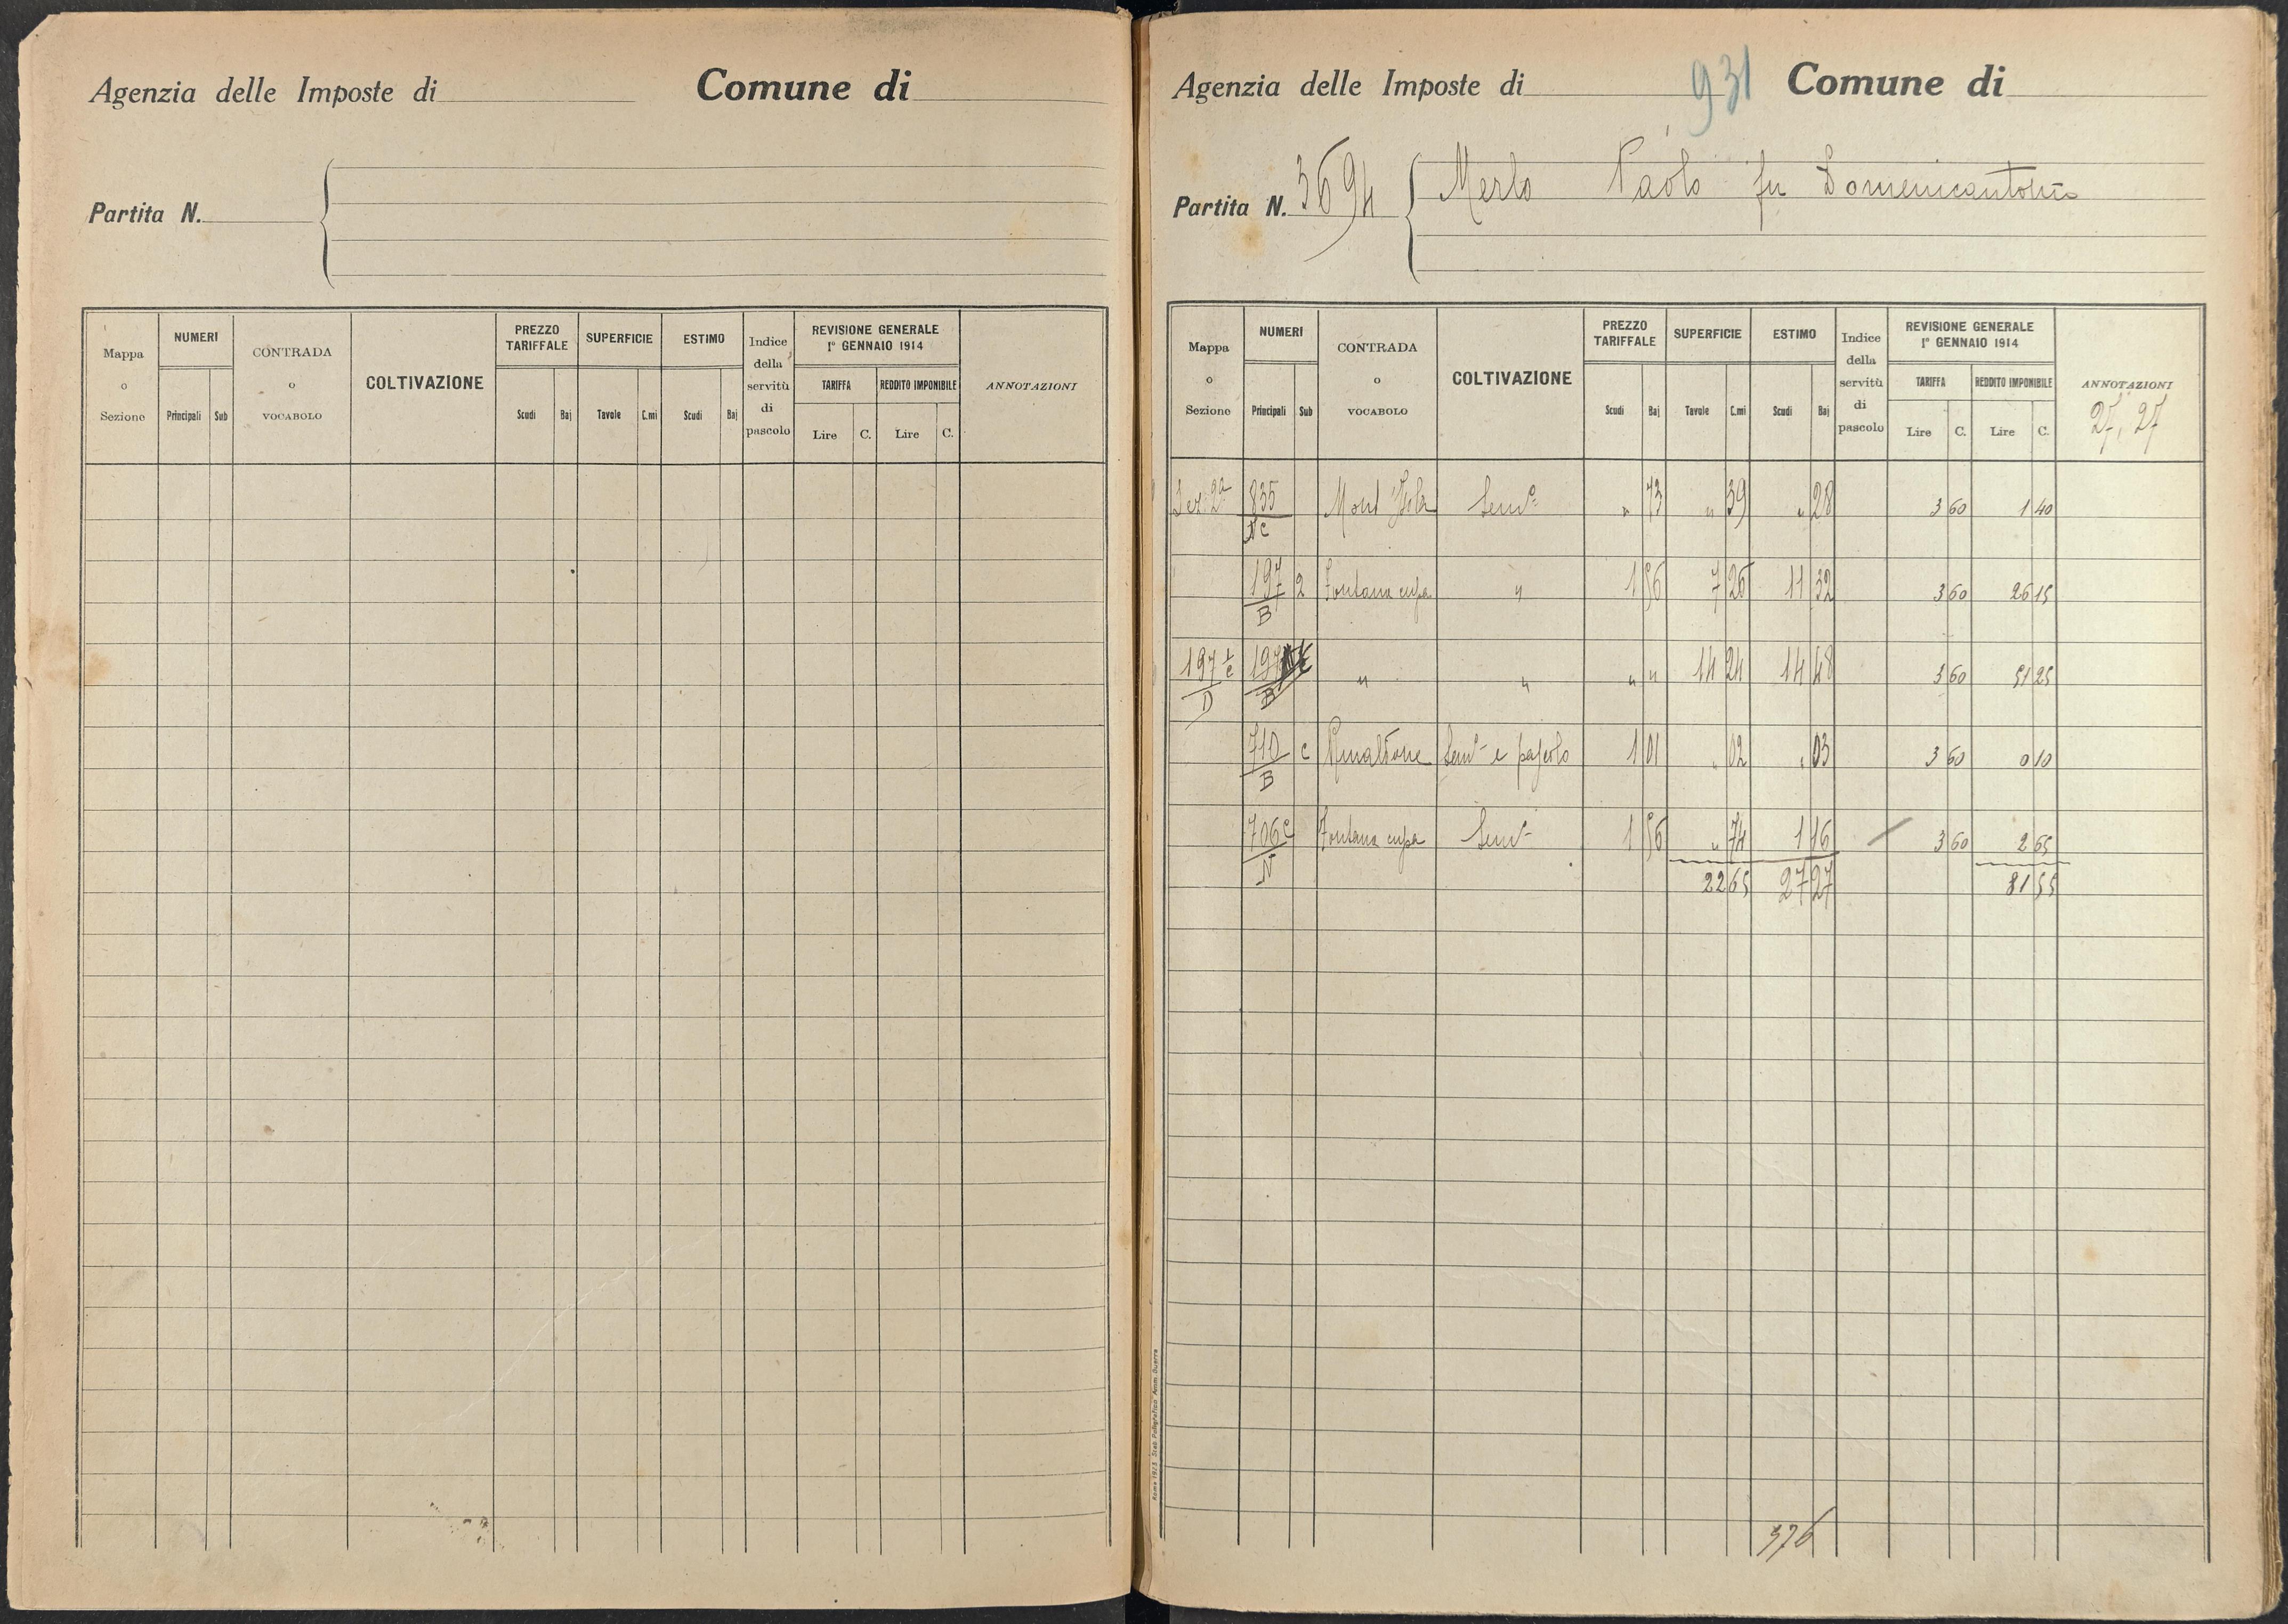 Agenzia delle Imposte di Comune di
Partita N.
Mappa o Sezione
NUMERI
Principali Sub
CONTRADA o VOCABOLO
COLTIVAZIONE
PREZZO TARIFFALE
Scudi Baj
SUPERFICIE
Tavole C.mi
ESTIMO
Scudi Baj
Indice della servitù di pascolo
REVISIONE GENERALE
1° GENNAIO 1914
TARIFFA REDDITO IMPONIBILE
Lire C. Lire C.
ANNOTAZIONI
931
Agenzia delle Imposte di Comune di
Partita N. 3694 Merlo Paolo fu Domenicantonio
Mappa o Sezione
NUMERI
Principali Sub
CONTRADA o VOCABOLO
COLTIVAZIONE
PREZZO TARIFFALE
Scudi Baj
SUPERFICIE
Tavole C.mi
ESTIMO
Scudi Baj
Indice della servitù di pascolo
REVISIONE GENERALE
1° GENNAIO 1914
TARIFFA REDDITO IMPONIBILE
Lire C. Lire C.
ANNOTAZIONI
27, 27
Sez. 2a 835 Mont' Isola Semo. " 73 " 39 " 28 3 60 1 40
197 2 Fontana cupa " 1 56 7 26 11 32 3 60 26 15
B
197 " " " " 14 24 14 48 3 60 51 25
D B
710 c Semo e pascolo 1 01 " 02 " 03 3 60 0 10
B
706 c Fontana cupa Semo 1 56 " 74 1 16 3 60 2 65
N
22 65 27 27 81 55
376
Roma 1923 Stab. Poligrafico Amm. Guerra